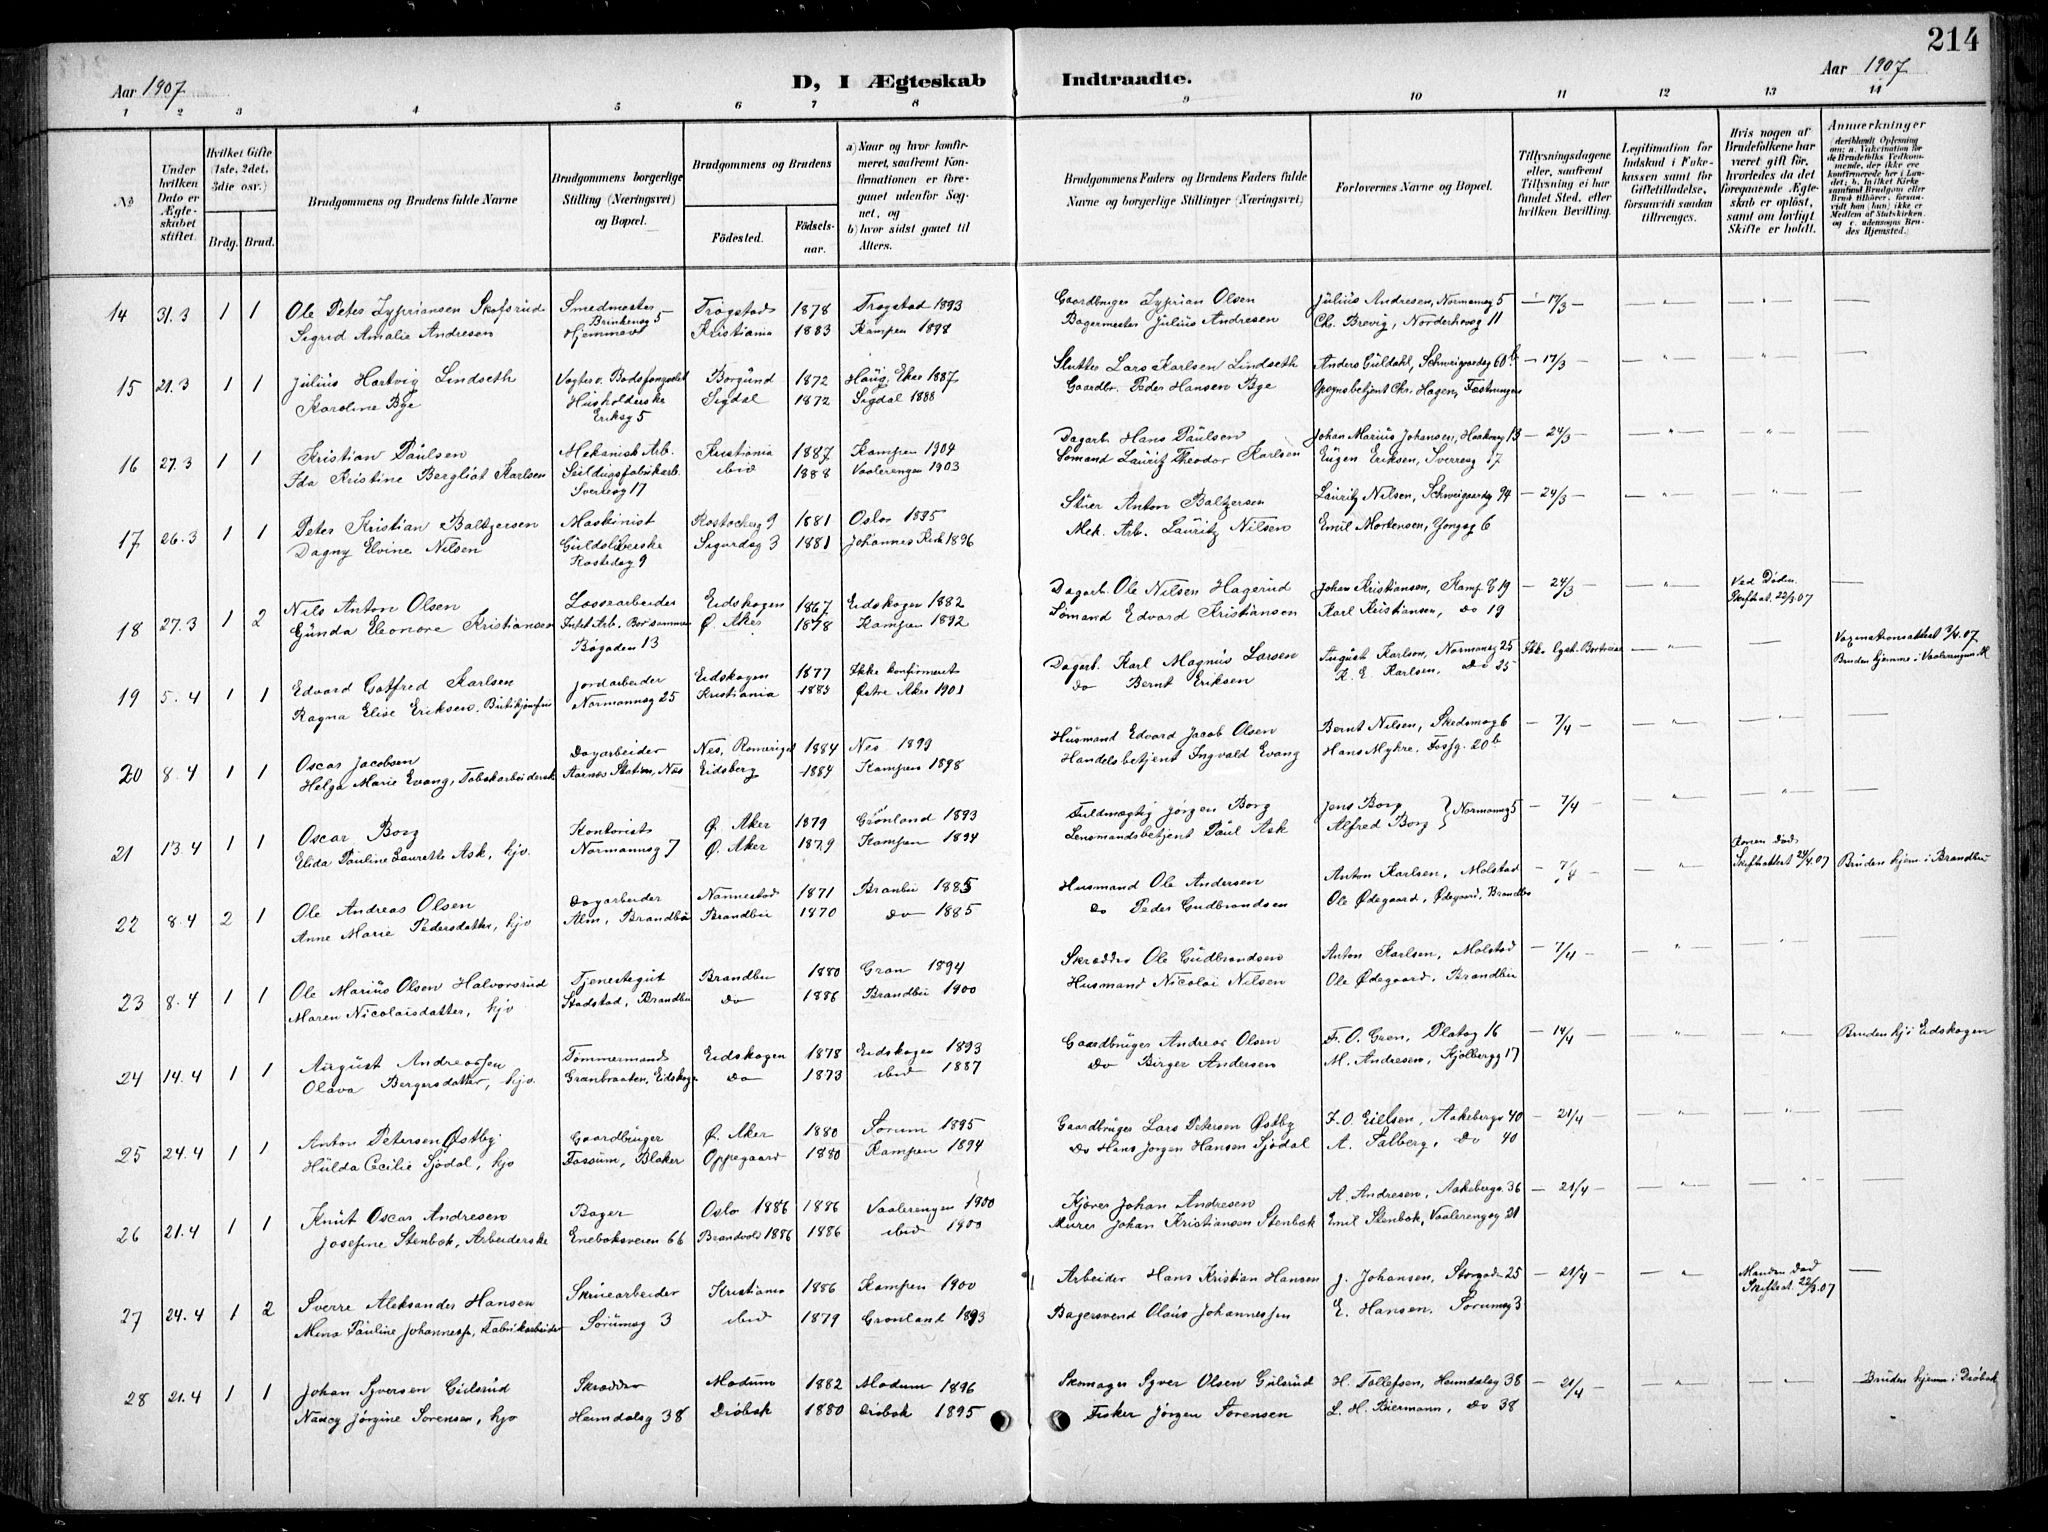 214
Aar 1907
D, I Ægteskab
Indtraadte.
Aar 1907
1 2 3 4 5 6 7 8 9 10 11 12 13 14
No
Under hvilken Dato er Ægteskabet stiftet.
Hvilket Gifte (1ste, 2det, 3die osv.)
Brdg. Brud.
Brudgommens og Brudens fulde Navne
Brudgommens borgerlige Stilling (Næringsvei) og Bopæl.
Brudgommens og Brudens
Fødested. Fødsels-aar.
a) Naar og hvor konfirmeret, saafremt Konfirmationen er foregaaet udenfor Sognet, og
b) hvor sidst gaaet til Alters.
Brudgommens Faders og Brudens Faders fulde Navne og borgerlige Stillinger (Næringsvei)
Forlovernes Navne og Bopæl.
Tillysningsdagene eller, saafremt Tillysning ei har fundet Sted, efter hvilken Bevilling.
Legitimation for Indskud i Enkekassen samt for Giftetilladelse, forsaavidt saadan tiltrænges.
Hvis nogen af Brudefolkene har været gift før, hvorledes da det foregaaende Ægteskab er opløst, samt om lovligt Skifte er holdt.
Anmærkninger
14 31.3 1 1 Ole Peter Zypriansen Skofsrud Smedmester Trøgstad 1878 Trøgstad 1893 Gaardbruger Zyprian Olsen Julius Andresen, Normansg 5 17/3
Sigrid Amalie Andresen Brinkensg 5 Hjemmev Kristiania 1883 Kampen 1898 Bagermester Julius Andresen Chr. Brevig, Norderhovsg 11
15 21.3 1 1 Julius Hartvig Lindseth Vogter v. Bodsfængslet Borgund 1872 Haug, Eker 1887 Slutter Lars Karlsen Lindseth Anders Guldahl, Schweigaardsg 60b 17/3
Karoline Bye Husholderske Sigdal 1872 Sigdal 1888 Gaardbr. Peder Hansen Bye Opsynsbetjent Chr. Hagen, Fæstningen
Eriksg 5
16 27.3 1 1 Kristian Paulsen Mekanisk Arb. Kristiania 1887 Kampen 1904 Dagarb. Hans Paulsen Johan Marius Johansen, Haakonsg 13 24/3
Ida Kristine Bergliot Karlsen Seildugsfabrikarb. ibid 1888 Vaalerengen 1903 Sømand Lauritz Theodor Karlsen Eugen Eriksen, Sverresg 17
Sverresg 17
17 26.3 1 1 Peter Kristian Baltzersen Maskinist Rostockerg 9 1881 Oslo 1895 Stuer Anton Baltzersen Lauritz Nilsen, Schweigaardsg 94 24/3
Dagny Elvine Nilsen Guldsliberske Sigurdsg 3 1881 Johannes Kirke 1896 Mek. Arb. Lauritz Nilsen Emil Mortensen, Jensg 6
18 27.3 1 2 Nils Anton Olsen Lossearbeider Eidskogen 1867 Eidskogen 1882 Dagarb. Ole Nilsen Hagerud Johan Kristiansen, Kamp G 19 24/3 Ved Døden. Skifteat. 22/3 07
Gunda Eleonore Kristiansen Ø. Aker 1878 Kampen 1892 Sømand Edvard Kristiansen Karl Kristiansen, Do 19
Bøgaden 13
19 5.4 1 1 Edvard Gotfred Karlsen Jordarbeider Eidskogen 1877 Ikke konfirmeret Dagarb. Karl Magnus Larsen August Karlson, Normansg 25 Vaxinationsattest 3/4 07
Ragna Elise Eriksen, Normannsg 25 Kristiania 1883 Østre Aker 1901 Do Bernt Eriksen K. E. Karlsen, Do 25 Bruden hjemme i Vaalerengen M
20 8.4 1 1 Oscar Jacobsen Dagarbeider Nes, Romeriget 1884 Nes 1899 Husmand Edvard Jacob Olsen Bernt Nilsen, Skedsmog 6 7/4
Helga Marie Evang, Tobakarbeiderske Aarnes Station, Nes Eidsberg 1884 Kampen 1898 Handelsbetjent Ingvald Evang Hans Myhre, Fossg. 20b
21 13.4 1 1 Oscar Borg Kontorist Ø. Aker 1879 Grønland 1893 Fuldmægtig Jørgen Borg Jens Borg } Normannsg 5 7/4
Elida Pauline Laurette Ask, hjv. Normannsg 7 Ø. Aker 1879 Kampen 1894 Lensmandsbetjent Paul Ask Alfred Borg
22 8.4 2 1 Ole Andreas Olsen Dagarbeider Nannestad 1871 Brandbu 1885 Husmand Ole Andersen Anton Karlsen, Molstad 7/4 Konen død. Skifteattest 24/4 07 Bruden hjem. i Brandbu
Anne Marie Pedersdatter, hjv Alm, Brandbu Brandbu 1870 Do 1885 Do Peder Gudbrandsen Ole Ødegaard, Ødegaard, Brandbu
23 8.4 1 1 Ole Marius Olsen Halvorsrud Tjenestegut Brandbu 1880 Gran 1894 Skrædder Ole Gudbrandsen Anton Karlsen, Molstad 7/4
Maren Nicolaisdatter, hjv Stadstad, Brandbu Do 1886 Brandbu 1900 Husmand Nicolai Nilsen Ole Ødegaard, Brandbu
24 14.4 1 1 August Andreassen Tømmermand Eidskogen 1878 Eidskogen 1893 Gaardbruger Andreas Olsen Fr. O. Gran, Platog 16 14/4 Bruden hjv Eidskogen
Olava Bergersdatter, hjv. Granbraaten, Eidskogen Do 1873 ibid 1887 Do Birger Andersen M. Andresen, Kjølbergg 17
25 24.4 1 1 Anton Petersen Østby Gaardbruger Ø. Aker 1880 Sorum 1895 Gaardbruger Lars Petersen Østby F. O. Eielsen, Aakebergv 40 21/4
Hulda Cecilie Sjødal, hjv Fossum, Blaker Oppegaard 1880 Kampen 1894 Do Hans Jørgen Hansen Sjødal A. Falberg, Do 40
26 21.4 1 1 Knut Oscar Andresen Bager Oslo 1886 1886 Vaalerengen 1900 Kjører Johan Andresen A. Andresen, Aakebergv. 36 21/4
Josefine Stenbok, Arbeiderske Enebaksveien 66 Brandvold 1886 1886 ibid 1900 Murer Johan Kristiansen Stenbok Emil Stenbok, Vaalerengsg 21
27 24.4 1 2 Sverre Aleksander Hansen Skruearbeider Kristiania 1886 Kampen 1900 Arbeider Hans Kristian Hansen J. Johansen, Storgaden 25 21/4 Manden død Skifteat. 22/3 07
Mina Pauline Johanness., Fabrikarbeider Sørumsg 3 ibid 1879 Grønland 1893 Bagersvend Olaus Johannessen E. Hansen, Sorumsg 3
28 21.4 1 1 Johan Syversen Gulsrud Skrædder Modum 1882 Modum 1896 Skomager Syver Olsen Gulsrud H. Tollefsen, Heimdalsg 38 21/4 Bruden hjemme i Drøbak
Nancy Jørgine Sørensen, hjv Heimdalsg 38 Drøbak 1880 Drøbak 1895 Fisker Jørgen Sørensen L. H. Biermann, Do 38